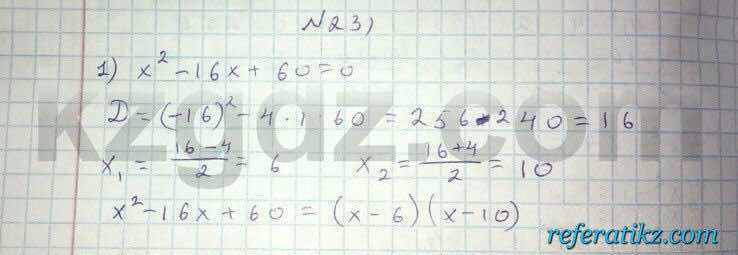 N23)
1) x² - 16x + 60 = 0
D = (-16)² - 4 · 1 · 60 = 256 - 240 = 16
x₁ = (16 - 4)/2 = 6    x₂ = (16 + 4)/2 = 10
x² - 16x + 60 = (x - 6)(x - 10)
kzgdz.com
referatikz.com